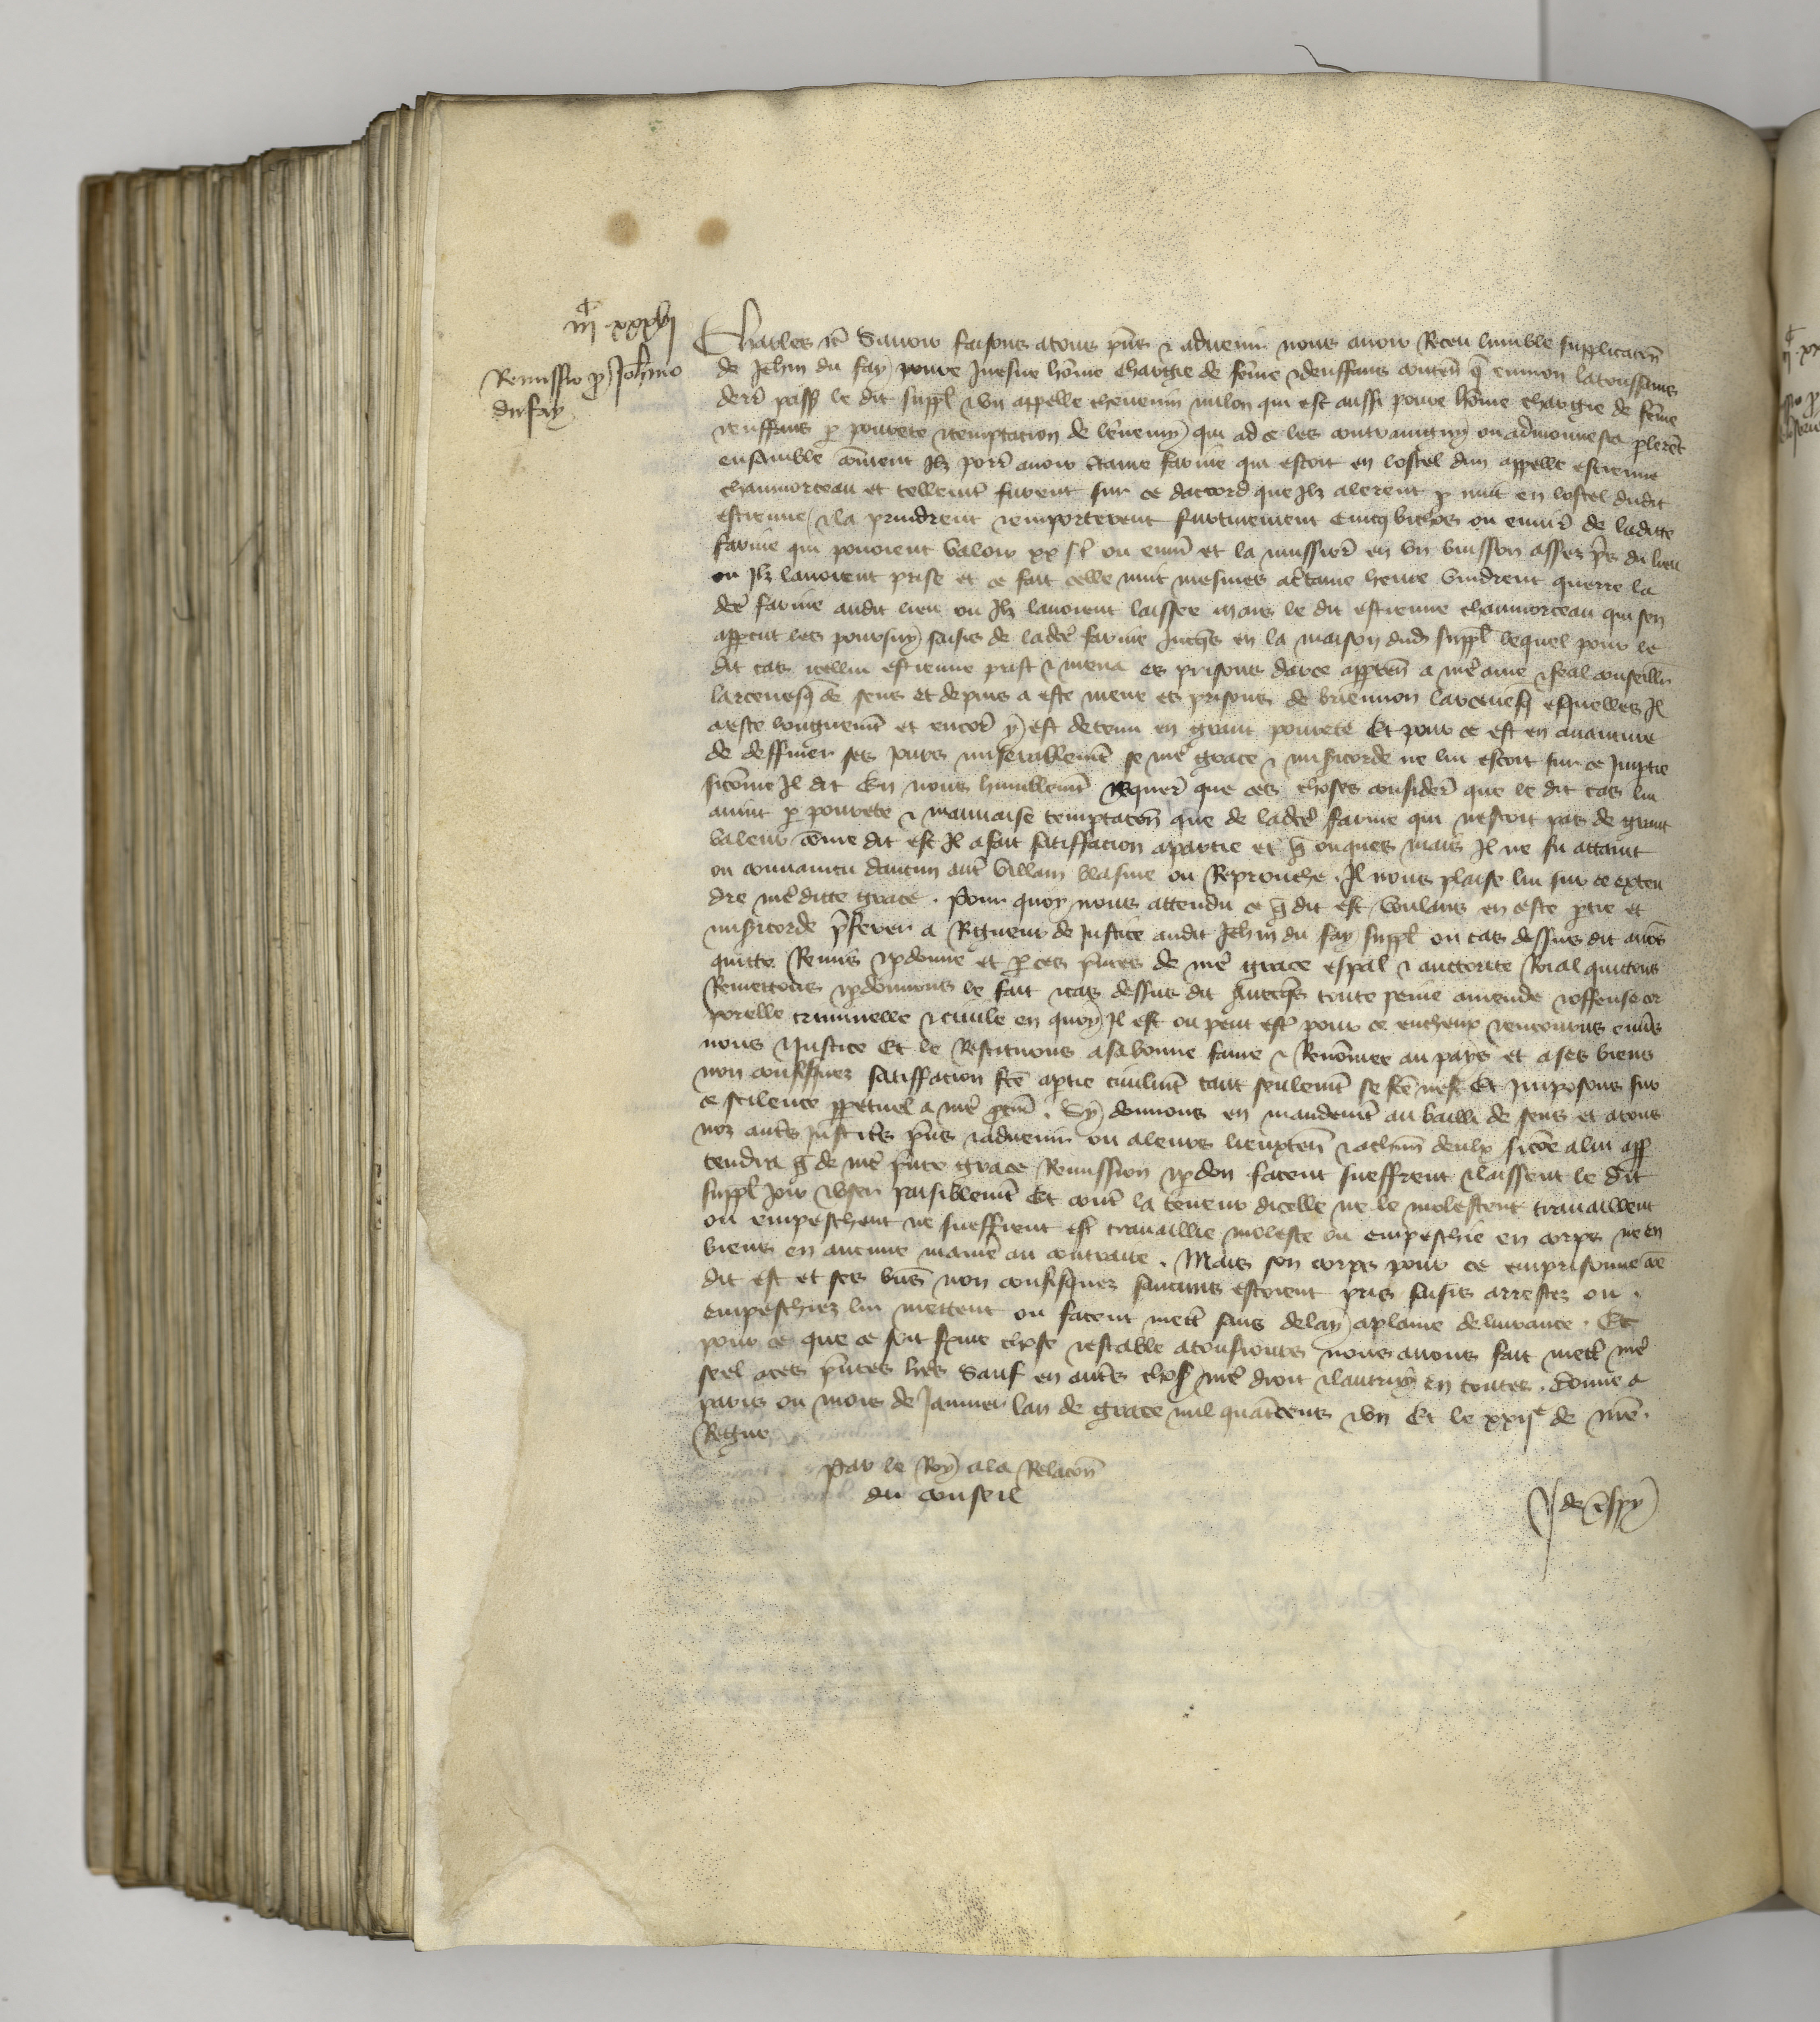 iijC xxxvij
Remissio p Johanno
du fay
Charles etc Savoir faisons a tous pns & advenir nous avoir Receu lumble supplicacōn
de Jehan du fay povre Juesne hōme chargie de fēme & denffans contenn q environ la toussains
derr passe le dit suppl & un appelle thevenin milon qui est aussi povre hōme chargie de fēme
& enffans p povrete & temptacion de lennemy qui ad ce les admonnesta plerēt
ensamble cōment Ilz porr avoir ctaine farine qui estoit en lostel dun appelle estienne
chaumorceau et tellemt furent sur ce dacord que Ilz alerent p nuit en lostel dudit
estienne & la prindrent & emporterent furtivement cincq bichos ou envir de laditte
farine qui povoient valoir xx sl ou envir et la mussier en un buisson asses ps du lieu
ou Ilz lavoient prise et ce fait celle nuit mesmes a ctaine heure vindrent querre la
dce farine audit lieu ou Ilz lavoient laissee mais le dit estienne chaumorceau qui sen
appcut les poursuy saisis de ladce farine Jusqs en la maison dud suppl lequel pour le
dit cas icellui estienne prist & mena es prisons darce apptēn a nre ame & feal conseillr
larcevesq de sens et depuis a este mene es prisons de briennon larcevesq esquelles Il
a este longuemt et encor y est detenu en grant povrete Et pour ce est en avanture
de deffiner ses jours miserablemt se nre grace & misicorde ne lui estoit sur ce Imptie
sicōme Il dit En nous humblemt Requer que ces choses consider que le dit cas lui
avint p povrete & mauvaise temptacōn que de ladce farine qui nestoit pas de grant
valeur cōme dit est Il a fait satiffacion a partie et q onques mais Il ne fu attaint
ou convaincu daucun aut villain blasme ou Reprouche. Il nous plaise lui sur ce exten
dre nre ditte grace. Pour quoy nous attendu ce q dit est voulans en ceste ptie et
misicorde pferer a Rigueur de Justice audit Jehan du fay suppl ou cas dessus dit avōs
quitte Remis & pdonne et p ces pntes de nre grace espal & auctorite Roial quittons
Remettons & pdonnons le fait & cas dessus dit Avecqs toute peine amende & offense cor
porelle criminelle & civile en quoy Il est ou peut estr pour ce encheux & encouruz envs
nous & Justice Et le Restituons a sa bonne fame & Renōmee au pays et a ses biens
non confisquez satiffacion fce a ptie civilmt tant seulemt se fce nest Et Imposons sur
ce scilence ppetuel a nre pcur. Sy donnons en mandemt au bailli de sens et a tous
noz auts Justicrs pns & advenir ou a leurs lieuxten & a chun deulx sicōe a lui app
tendra q de nre pnte grace Remission & pdon facent sueffrent & laissent le dit
suppl Joir & user paisiblemt Et cont la teneur dicelle ne le molestent travaillent
ou empeschent ne sueffrent estr travaillie moleste ou empeschie en corps ne en
biens en aucune manie au contraire. Mais son corps pour ce emprisonne cōe
dit est et ses bns non confisquez saucuns estoient pris saisis arrestez ou
empeschiez lui mettent ou facent mettr sans delay a plaine delivrance. Et
pour ce que ce soit ferme chose & estable a tousiours nous avons fait mettr nre
seel a ces pntes lres Sauf en auts chos nre droit & lautruy en toutes. Donne a
paris ou mois de Janvier lan de grace mil quatcens & un Et le xxije de nre
Regne
Par le Roy a la Relacōn
du conseil
J de Espy